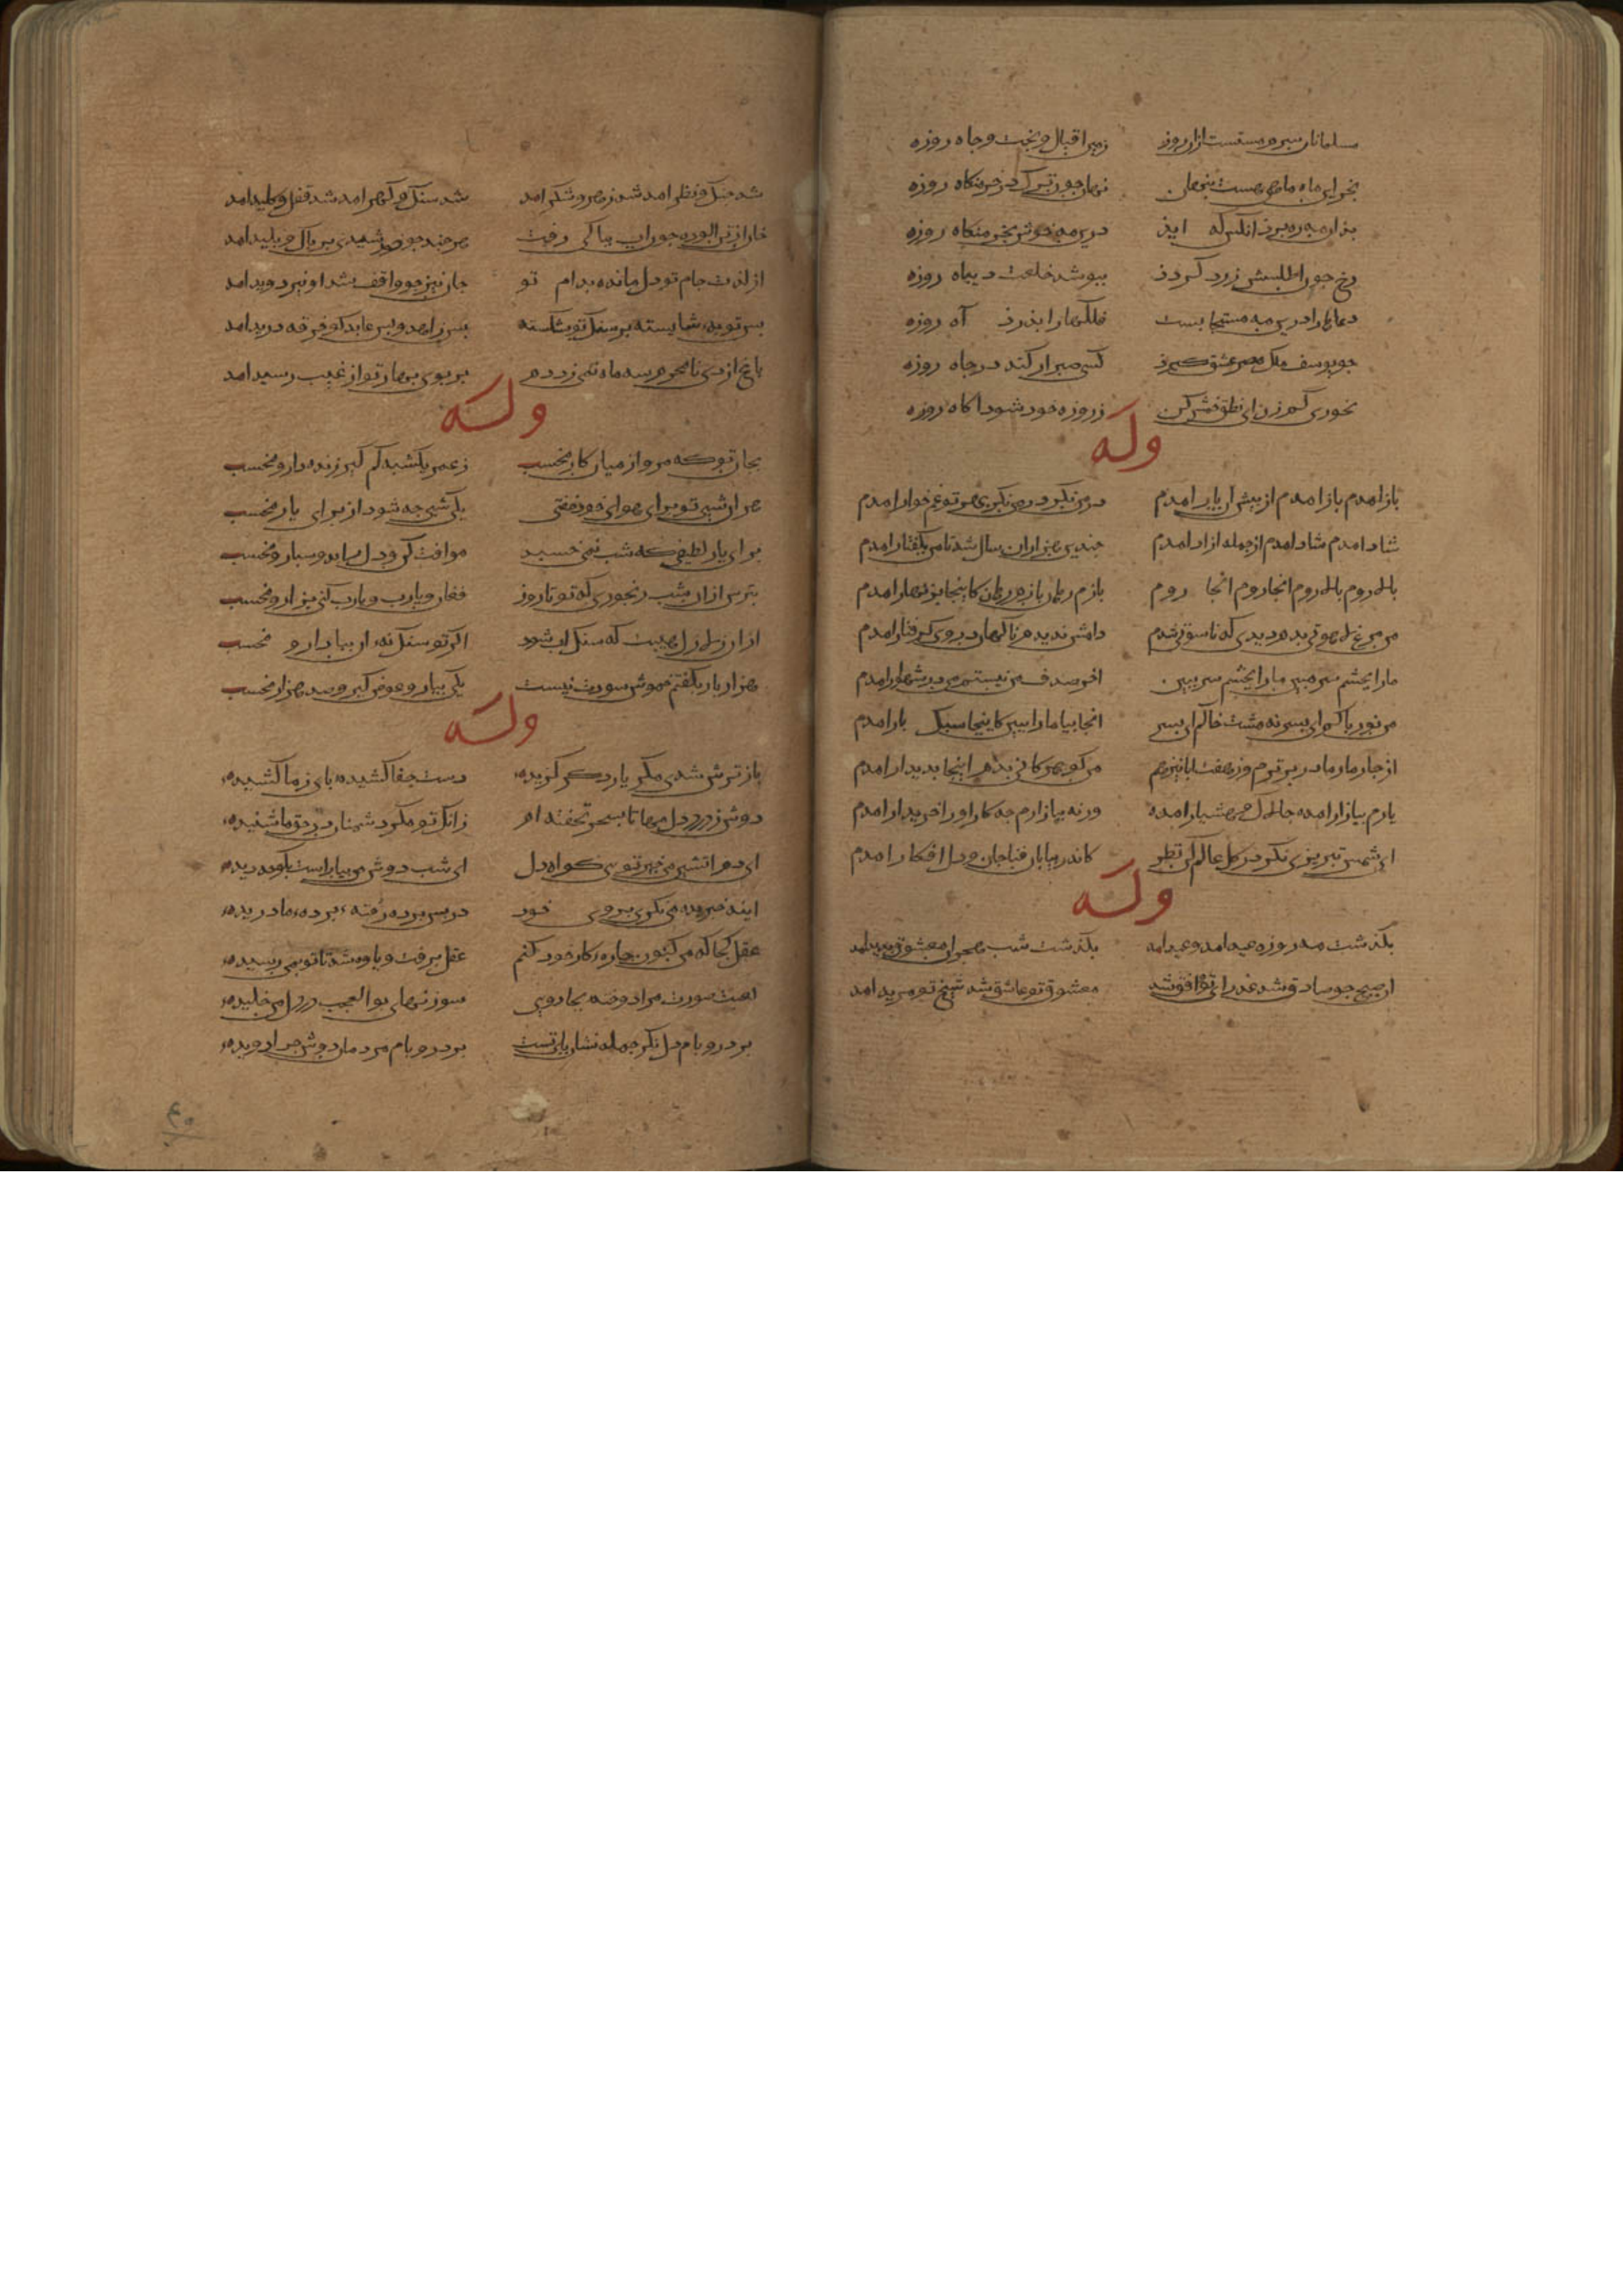 مسلمانان سرم مستست از روزه زهی اقبال و بخت و جاه روزه
بخرای ماه ماهی هست پنهان نهان چون ترک در خرمنکاه روزه
بذان مه ره برذ انکس که ایذ درین مه خوش بخرمنکاه روزه
رخ جون اطلسش زرد کردذ ببوشد خلعت دیباه روزه
دعاها را درین مه مستجابست فلکها را بذرذ آه روزه
جو یوسف ملک مصر عشق کیرذ کسی صبر ار کند در جاه روزه
سحوری کم زن ای نطق و خمش کن ز روزه خود شود اکاه روزه
وله
باز امدم باز امدم از بیش ان یار امدم در من نکر در من نکر بهر تو غمخوار امدم
شاد امدم شاد امدم از جمله ازاد امدم جندین هزاران سال شد تا من بکفتار امدم
بالا روم بالا روم انجا روم انجا روم بازم رهان بازم رهان کاینجا بزنهار امدم
من مرغ لاهوتی بدم دیدی که ناسوتی شدم دامش ندیدم ناکهان در وی کرفتار امدم
ما را بچشم سر مبین ما را بچشم سر ببین اخر صدف من نیستم من در شهوار امدم
من نور باکم ای بسر نه مشت خاکم ای بسر انجا بیا ما را ببین کاینجا سبک بار امدم
از جار مادر برترم وز هفت ابا نیز هم من کوهر کانی بدم اینجا بدیدار امدم
یارم ببازار امده جالاک و هشیار امده ورنه ببازارم جه کار او را خریدار امدم
ای شمس تبریزی نکر در کل عالم کن نظر کاندر بیابان فنا جان و دل افکار امدم
وله
بکذشت مه روزه عید امد و عید امد بکذشت شب هجران معشوق بدید امد
ان صبح جو صادق شد عذرای تو وامق شد معشوق تو عاشق شد شیخ تو مرید امد
شد جنک و نظر امد شد زهر و شکر امد شد سنک و کهر امد شد قفل و کلید امد
جان از تن الوده جون اب بباکی رفت هر جند جو خورشیدی بر باک و بلید امد
از لذت جام تو دل مانده بدام تو جان نیز جو واقف شد او نیز دوید امد
بس توبه شایسته بر سنک تو بشکسته بس زاهد و بس عابد کو خرقه درید امد
باغ از دی نامحرم سه ماه نمی زد دم بر بوی بهار تو از غیب رسید امد
وله
بجان تو که مرو از میان کار مخسب ز عمر یکشبه کم کیر زنده دار و مخسب
هزار شب تو برای هوای خوذ خفتی یکی شبی جه شود از برای یار مخسب
برای یار لطیفی که شب نمی خسبد موافقت کن و دل را بدو سبار و مخسب
بترس ازان شب رنجوری که تو تا روز فغان و یارب و یارب کنی بزار و مخسب
ازان زلازل هیبت که سنک اب شود اکر تو سنک نه ان بیاد ار و مخسب
هزار بار بکفتم خموش سودت نیست یکی بیار و عوض کیر و صد هزار مخسب
وله
باز ترش شدی مکر یار دکر کزیده دست جفا کشیده بای ز ما کشیده
دوش ز درد دل مها تا بسحر نخفته ام زانک تو مکر دشمنان در حق ما شنیده
ای دم اتشین من خیز تویی کواه دل ای شب دوش من بیا راست بکو جه دیده
اینه خریده می نکری بروی خود در بس برده رفته برده ما دریده
عقل کجا که من کنون جاره کار خود کنم عقل برفت و یاوه شد تا تو بمن رسیده
لعبت صورت مرا دوخته بجادویی سوزنهای بوالعجب در دل من خلیده
بر در و بام دل نکر جمله نشان بای تست بر در و بام مردمان دوش جرا دویده
۴۰